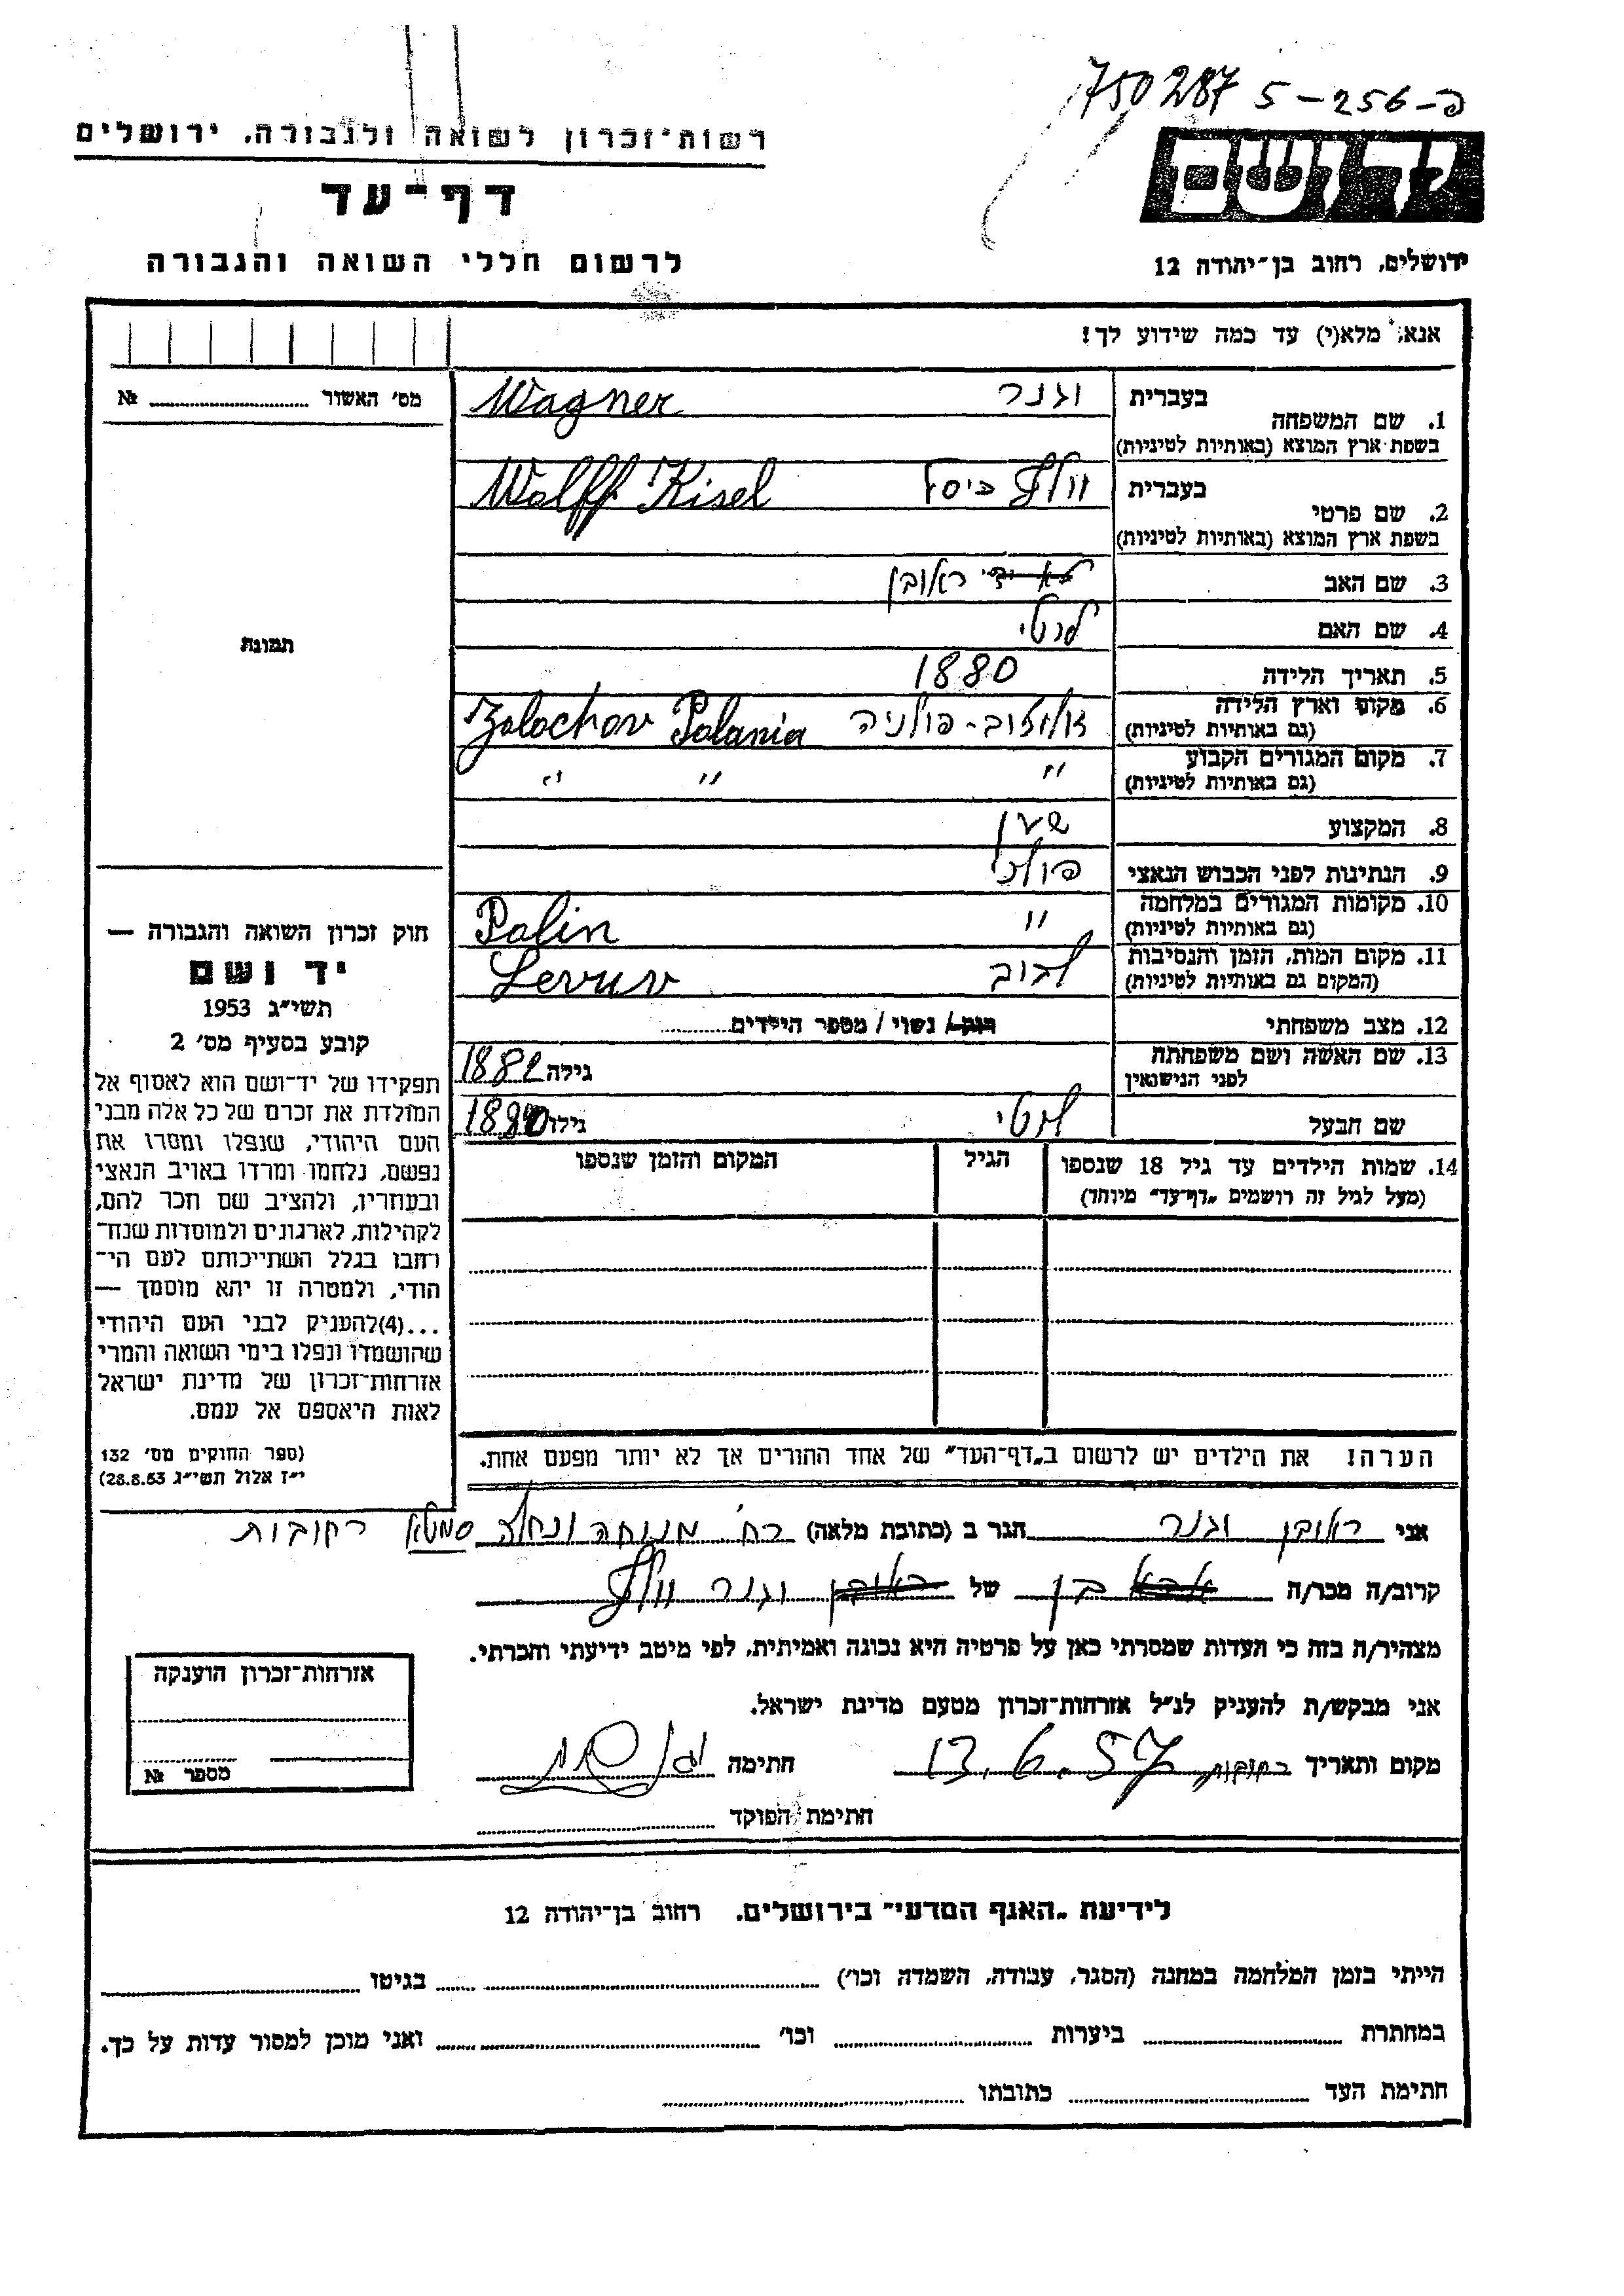 750287 5-256-פ
רשות-זכרון לשואה ולגבורה, ירושלים
ידושם
דף-עד
לרשום חללי השואה והגבורה
ירושלים, רחוב בן-יהודה 12
אנא, מלא(י) עד כמה שידוע לך!
מס׳ האשור № 
בעברית וגנר Wagner
1. שם המשפחה
בשפת ארץ המוצא (באותיות לטיניות)
בעברית וולף כיסל Wolff Kisel
2. שם פרטי
בשפת ארץ המוצא (באותיות לטיניות)
3. שם האב ראובן
4. שם האם
תמונה
5. תאריך הלידה 1880
6. מקום וארץ הלידה זלוצוב - פולניה Zalochov Polania
(גם באותיות לטיניות)
7. מקום המגורים הקבוע " " "
(גם באותיות לטיניות)
8. המקצוע
9. הנתינות לפני הכבוש הנאצי פולני
10. מקומות המגורים במלחמה " Polin
(גם באותיות לטיניות)
11. מקום המות, הזמן והנסיבות לבוב Levuv
(המקום גם באותיות לטיניות)
12. מצב משפחתי רווק/ נשוי / מספר הילדים
13. שם האשה ושם משפחתה גילה 1882
לפני הנישואין
שם הבעל גילו 1880
14. שמות הילדים עד גיל 18 שנספו הגיל המקום והזמן שנספו
(מעל לגיל זה רושמים „דף-עד” מיוחד)
חוק זכרון השואה והגבורה —
יד ושם
תשי״ג 1953
קובע בסעיף מס׳ 2
תפקידו של יד-ושם הוא לאסוף אל
המולדת את זכרם של כל אלה מבני
העם היהודי, שנפלו ומסרו את
נפשם, נלחמו ומרדו באויב הנאצי
ובעוזריו, ולהציב שם וזכר להם,
לקהילות, לארגונים ולמוסדות שנח־
רחבו בגלל השתייכותם לעם הי־
הודי, ולמטרה זו יהא מוסמך —
...(4)להעניק לבני העם היהודי
שהושמדו ונפלו בימי השואה והמרי
אזרחות-זכרון של מדינת ישראל
לאות היאספם אל עמם.
(ספר החוקים מס׳ 132
י״ז אלול תשי״ג 28.8.53)
הערה! את הילדים יש לרשום ב„דף-העד” של אחד ההורים אך לא יותר מפעם אחת.
אני ראובן וגנר הגר ב (כתובת מלאה) רח׳ מנוחה ונחלה סמטא רחובות
קרוב/ה מכר/ה בן של וגנר וולף
מצהיר/ה בזה כי העדות שמסרתי כאן על פרטיה היא נכונה ואמיתית, לפי מיטב ידיעתי והכרתי.
אני מבקש/ת להעניק לנ״ל אזרחות-זכרון מטעם מדינת ישראל.
מקום ותאריך רחובות 13.6.57 חתימה
חתימת הפוקד
אזרחות-זכרון הוענקה
מספר №
לידיעת „האגף המדעי” בירושלים, רחוב בן-יהודה 12
הייתי בזמן המלחמה במחנה (הסגר, עבודה, השמדה וכו׳) בגיטו
במחתרת ביערות וכו׳ ואני מוכן למסור עדות על כך.
חתימת העד כתובתו